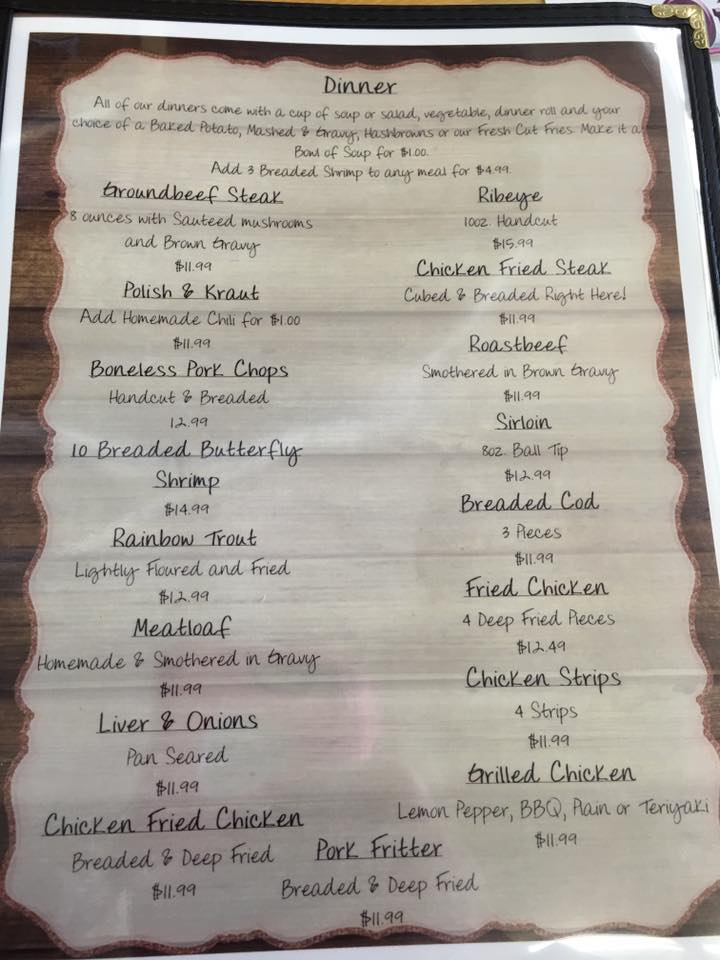 Dinner
All of our dinners come with a cup of soup or salad, vegetable, dinner roll and your
choice of a Baked Potato, Mashed & Gravy, Hashbrowns or our Fresh Cut Fries. Make it a
Bowl of Soup for $1.00.
Add 3 Breaded Shrimp to any meal for $4.99.
Groundbeef Steak
8 ounces with Sauteed mushrooms
and Brown Gravy
$11.99
Polish & Kraut
Add Homemade Chili for $1.00
$11.99
Boneless Pork Chops
Handcut & Breaded
12.99
10 Breaded Butterfly
Shrimp
$14.99
Rainbow Trout
Lightly Floured and Fried
$12.99
Meatloaf
Homemade & Smothered in Gravy
$11.99
Liver & Onions
Pan Seared
$11.99
Chicken Fried Chicken
Breaded & Deep Fried
$11.99
Ribeye
10oz. Handcut
$15.99
Chicken Fried Steak
Cubed & Breaded Right Here!
$11.99
Roastbeef
Smothered in Brown Gravy
$11.99
Sirloin
8oz. Ball Tip
$12.99
Breaded Cod
3 Pieces
$11.99
Fried Chicken
4 Deep Fried Pieces
$12.49
Chicken Strips
4 Strips
$11.99
Grilled Chicken
Lemon Pepper, BBQ, Plain or Teriyaki
$11.99
Pork Fritter
Breaded & Deep Fried
$11.99